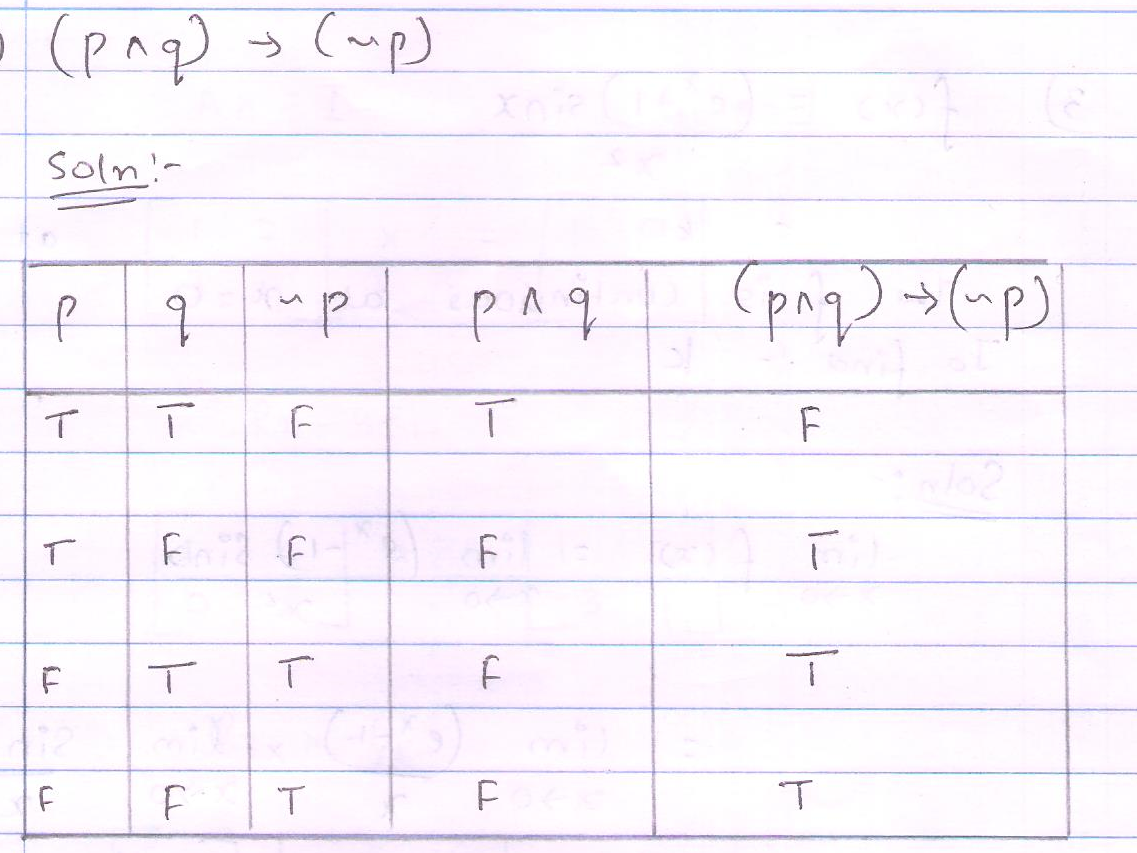 ) (p ∧ q) → (~p)
Soln:-
p q ~p p ∧ q (p∧q) → (~p)
T T F T F
T F F F T
F T T F T
F F T F T